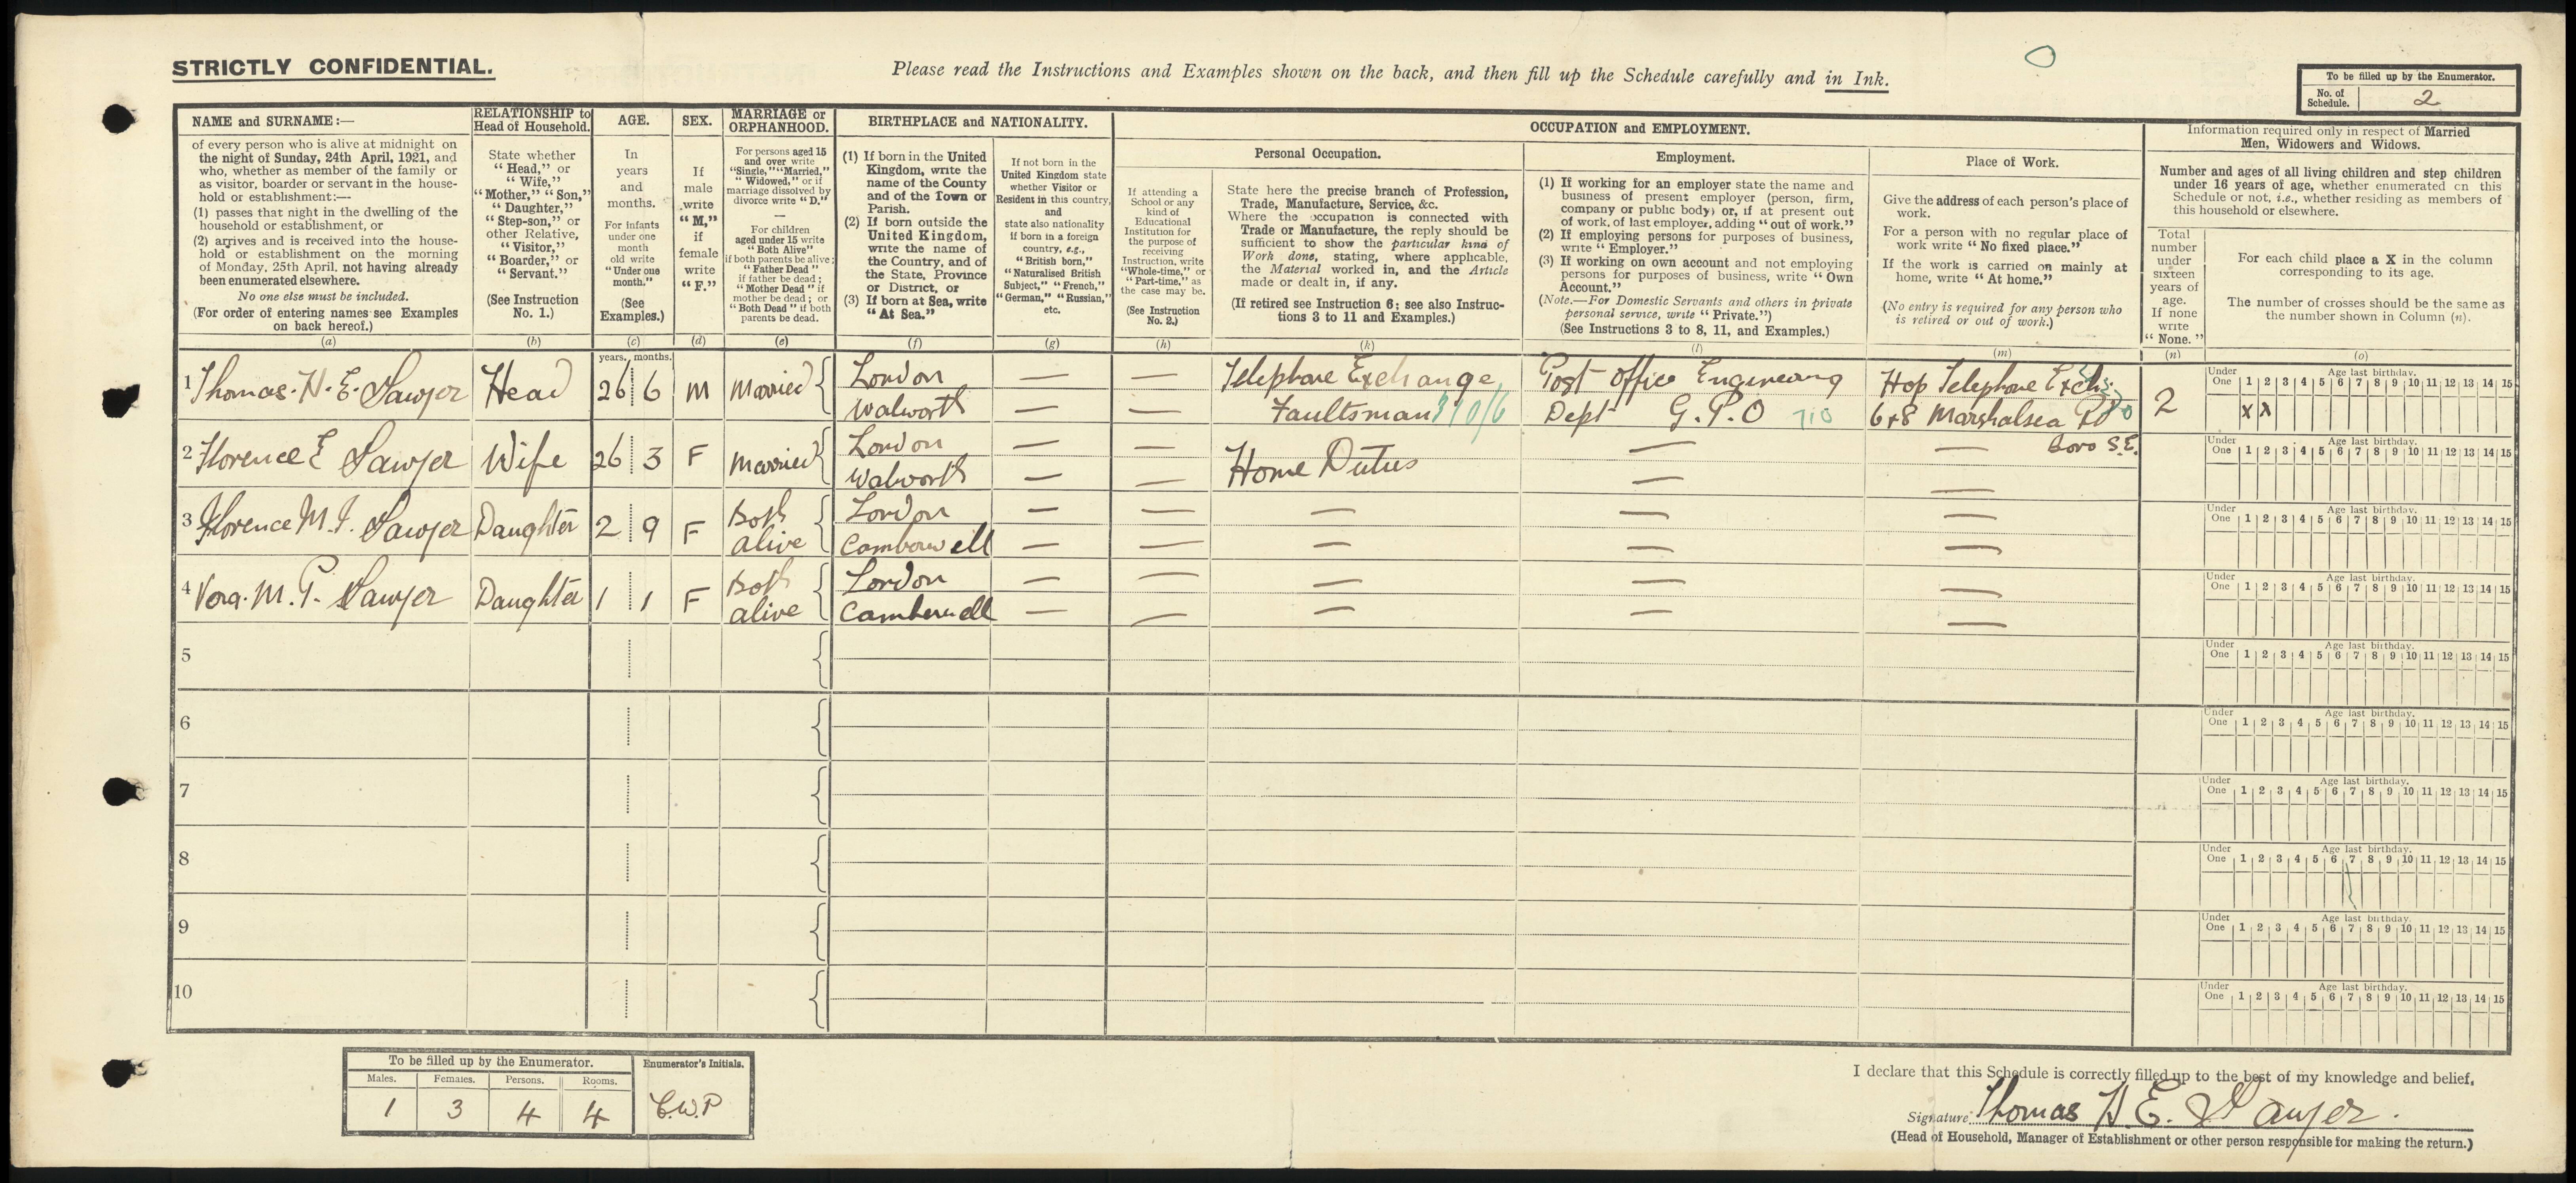 STRICTLY CONFIDENTIAL.
Please read the Instructions and Examples shown on the back, and then fill up the Schedule carefully and in Ink.
To be filled up by the Enumerator.
No. of Schedule. 2
NAME and SURNAME:—
of every person who is alive at midnight on
the night of Sunday, 24th April, 1921, and
who, whether as member of the family or
as visitor, boarder or servant in the house-
hold or establishment:—
(1) passes that night in the dwelling of the
household or establishment, or
(2) arrives and is received into the house-
hold or establishment on the morning
of Monday, 25th April, not having already
been enumerated elsewhere.
No one else must be included.
(For order of entering names see Examples
on back hereof.)
(a)
RELATIONSHIP to
Head of Household.
State whether
"Head," or
"Wife,"
"Mother," "Son,"
"Daughter,"
"Step-son," or
other Relative,
"Visitor,"
"Boarder," or
"Servant."
(See Instruction
No. 1.)
(b)
AGE.
In
years
and
months.
For infants
under one
month
old write
"Under one
month."
(See
Examples.)
(c)
SEX.
If
male
write
"M,"
if
female
write
"F."
(d)
MARRIAGE or
ORPHANHOOD.
For persons aged 15
and over write
"Single," "Married,"
"Widowed," or if
marriage dissolved by
divorce write "D."
—
For children
aged under 15 write
"Both Alive"
if both parents be alive;
"Father Dead"
if father be dead;
"Mother Dead" if
mother be dead; or
"Both Dead" if both
parents be dead.
(e)
BIRTHPLACE and NATIONALITY.
(1) If born in the United
Kingdom, write the
name of the County
and of the Town or
Parish.
(2) If born outside the
United Kingdom,
write the name of
the Country, and of
the State, Province
or District, or
(3) If born at Sea, write
"At Sea."
(f)
If not born in the
United Kingdom state
whether Visitor or
Resident in this country,
and
state also nationality
if born in a foreign
country, e.g.,
"British born,"
"Naturalised British
Subject," "French,"
"German," "Russian,"
etc.
(g)
OCCUPATION and EMPLOYMENT.
Personal Occupation.
If attending a
School or any
kind of
Educational
Institution for
the purpose of
receiving
Instruction, write
"Whole-time," or
"Part-time," as
the case may be.
(See Instruction
No. 2.)
(h)
State here the precise branch of Profession,
Trade, Manufacture, Service, &c.
Where the occupation is connected with
Trade or Manufacture, the reply should be
sufficient to show the particular kind of
Work done, stating, where applicable,
the Material worked in, and the Article
made or dealt in, if any.
(If retired see Instruction 6; see also Instruc-
tions 3 to 11 and Examples.)
(k)
Employment.
(1) If working for an employer state the name and
business of present employer (person, firm,
company or public body) or, if at present out
of work, of last employer, adding "out of work."
(2) If employing persons for purposes of business,
write "Employer."
(3) If working on own account and not employing
persons for purposes of business, write "Own
Account."
(Note.—For Domestic Servants and others in private
personal service, write "Private.")
(See Instructions 3 to 8, 11, and Examples.)
(l)
Place of Work.
Give the address of each person's place of
work.
For a person with no regular place of
work write "No fixed place."
If the work is carried on mainly at
home, write "At home."
(No entry is required for any person who
is retired or out of work.)
(m)
Information required only in respect of Married
Men, Widowers and Widows.
Number and ages of all living children and step children
under 16 years of age, whether enumerated on this
Schedule or not, i.e., whether residing as members of
this household or elsewhere.
Total
number
under
sixteen
years of
age.
If none
write
"None."
(n)
For each child place a X in the column
corresponding to its age.
The number of crosses should be the same as
the number shown in Column (n).
(o)
years. months.
1 Thomas. H. E. Sawyer Head 26 6 M Married London — — Telephone Exchange Post Office Engineering Hop Telephone Exch. 2
Walworth — — Faultsman 310/6 Dept G.P.O 710 6+8 Marshalsea Rd
Boro S.E.
Under One 1 2 3 4 5 6 7 8 9 10 11 12 13 14 15 Age last birthday.
x x
2 Florence E Sawyer Wife 26 3 F Married London — — — —
Walworth — — Home Duties — —
Under One 1 2 3 4 5 6 7 8 9 10 11 12 13 14 15 Age last birthday.
3 Florence M. I. Sawyer Daughter 2 9 F Both London — — — — —
alive Camberwell — — — — —
Under One 1 2 3 4 5 6 7 8 9 10 11 12 13 14 15 Age last birthday.
4 Vera. M. P. Sawyer Daughter 1 1 F Both London — — — — —
alive Camberwell — — — — —
Under One 1 2 3 4 5 6 7 8 9 10 11 12 13 14 15 Age last birthday.
5
Under One 1 2 3 4 5 6 7 8 9 10 11 12 13 14 15 Age last birthday.
6
Under One 1 2 3 4 5 6 7 8 9 10 11 12 13 14 15 Age last birthday.
7
Under One 1 2 3 4 5 6 7 8 9 10 11 12 13 14 15 Age last birthday.
8
Under One 1 2 3 4 5 6 7 8 9 10 11 12 13 14 15 Age last birthday.
9
Under One 1 2 3 4 5 6 7 8 9 10 11 12 13 14 15 Age last birthday.
10
Under One 1 2 3 4 5 6 7 8 9 10 11 12 13 14 15 Age last birthday.
To be filled up by the Enumerator.
Males. Females. Persons. Rooms.
1 3 4 4
Enumerator's Initials.
C.W.P
I declare that this Schedule is correctly filled up to the best of my knowledge and belief.
Signature Thomas H. E. Sawyer.
(Head of Household, Manager of Establishment or other person responsible for making the return.)